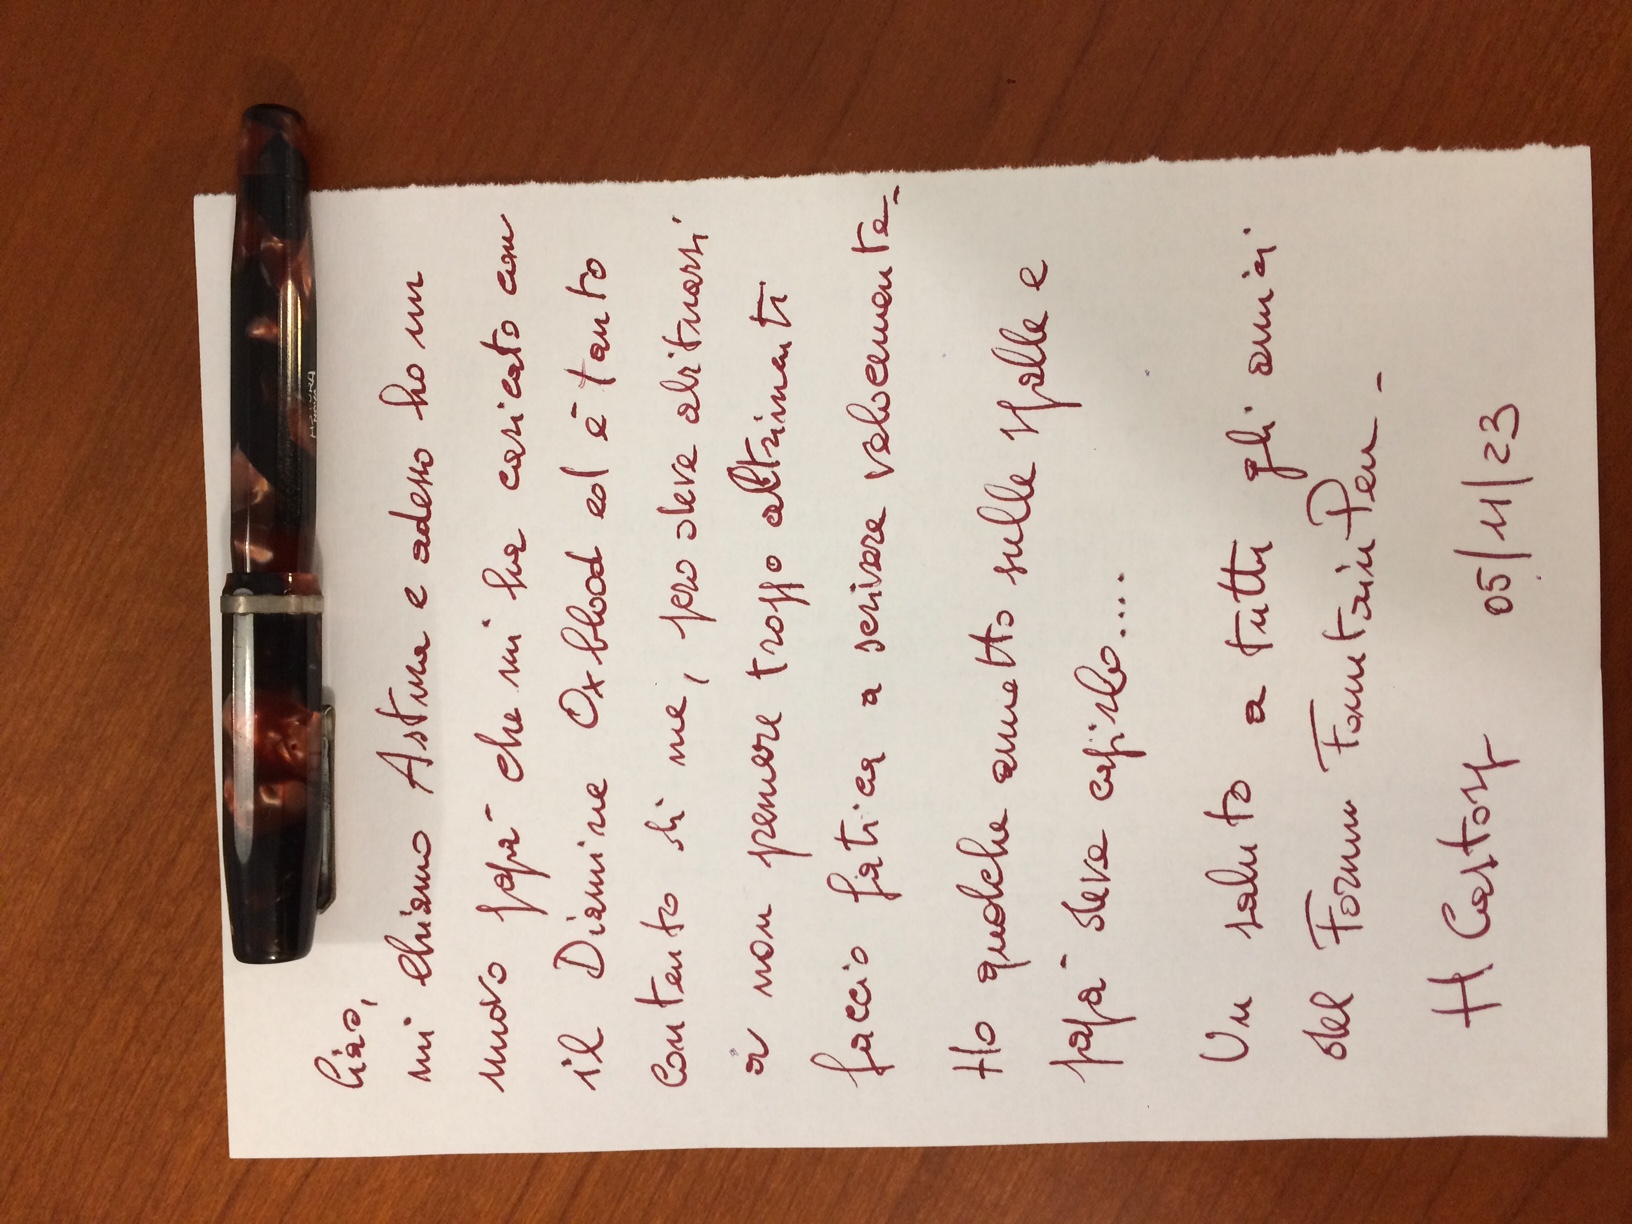 Ciao,
mi chiamo Astura e adesso ho un
nuovo papà che mi ha caricato con
il Diamine Oxblood ed è tanto
contento di me, però deve abituarsi
a non premere troppo altrimenti
faccio fatica a scrivere velocemente.
Ho qualche annetto sulle spalle e
papà deve capirlo....
Un saluto a tutti gli amici
del Forum Fountain Pen.
05/11/23